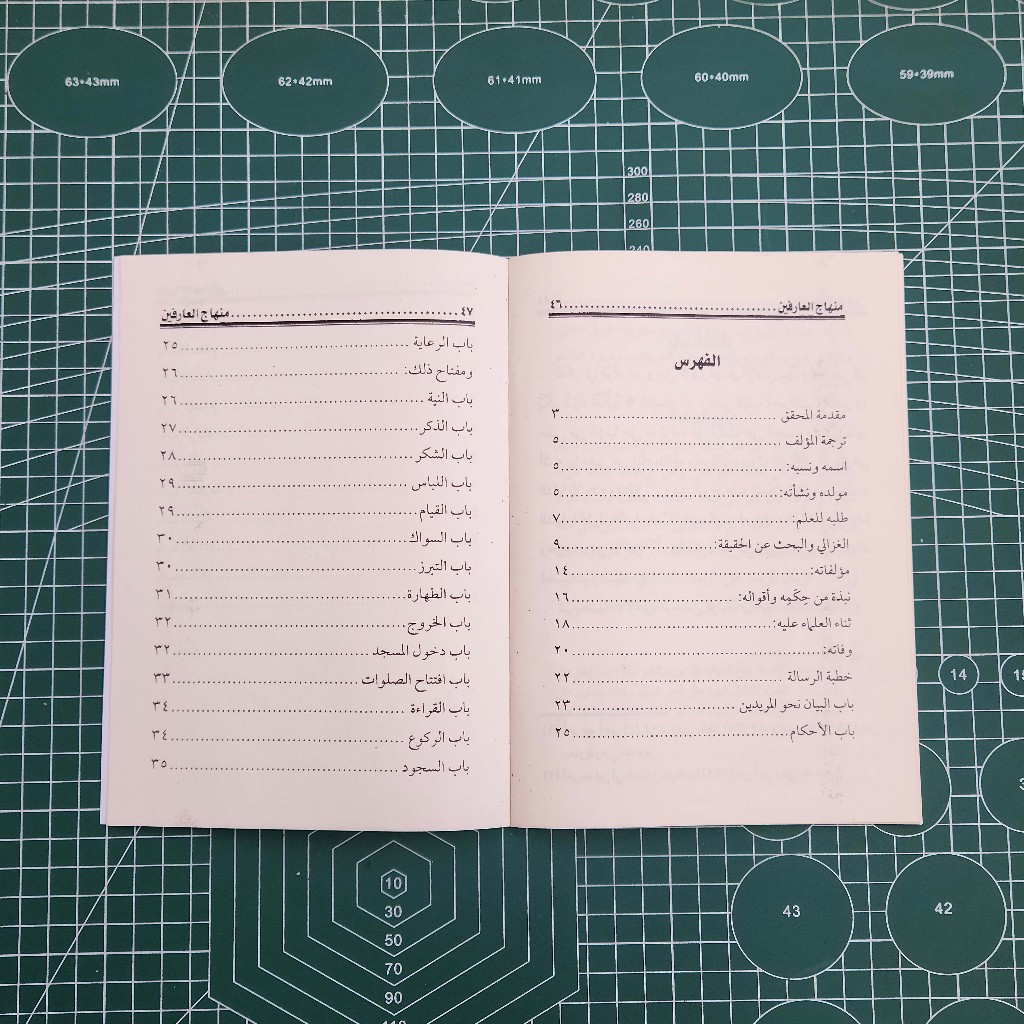 63*43mm
62*42mm
61*41mm
60*40mm
59*39mm
300
280
260
240
منهاج العارفين......................................٤٦
الفهرس
مقدمة المحقق ......................................٣
ترجمة المؤلف ......................................٥
اسمه ونسبه: ......................................٥
مولده ونشأته:......................................٥
طلبه للعلم: ......................................٧
الغزالي والبحث عن الحقيقة:......................................٩
مؤلفاته:......................................١٤
نبذة من حِكَمِه وأقواله: ......................................١٦
ثناء العلماء عليه: ......................................١٨
وفاته:......................................٢٠
خطبة الرسالة ......................................٢٢
باب البيان نحو المريدين ......................................٢٣
باب الأحكام......................................٢٥
٤٧......................................منهاج العارفين
باب الرعاية ......................................٢٥
ومفتاح ذلك: ......................................٢٦
باب النية ......................................٢٦
باب الذكر......................................٢٧
باب الشكر......................................٢٨
باب اللباس ......................................٢٩
باب القيام......................................٢٩
باب السواك......................................٣٠
باب التبرز......................................٣٠
باب الطهارة......................................٣١
باب الخروج......................................٣٢
باب دخول المسجد ......................................٣٢
باب افتتاح الصلوات ......................................٣٣
باب القراءة ......................................٣٤
باب الركوع ......................................٣٤
باب السجود ......................................٣٥
14
10
30
50
70
90
43
42